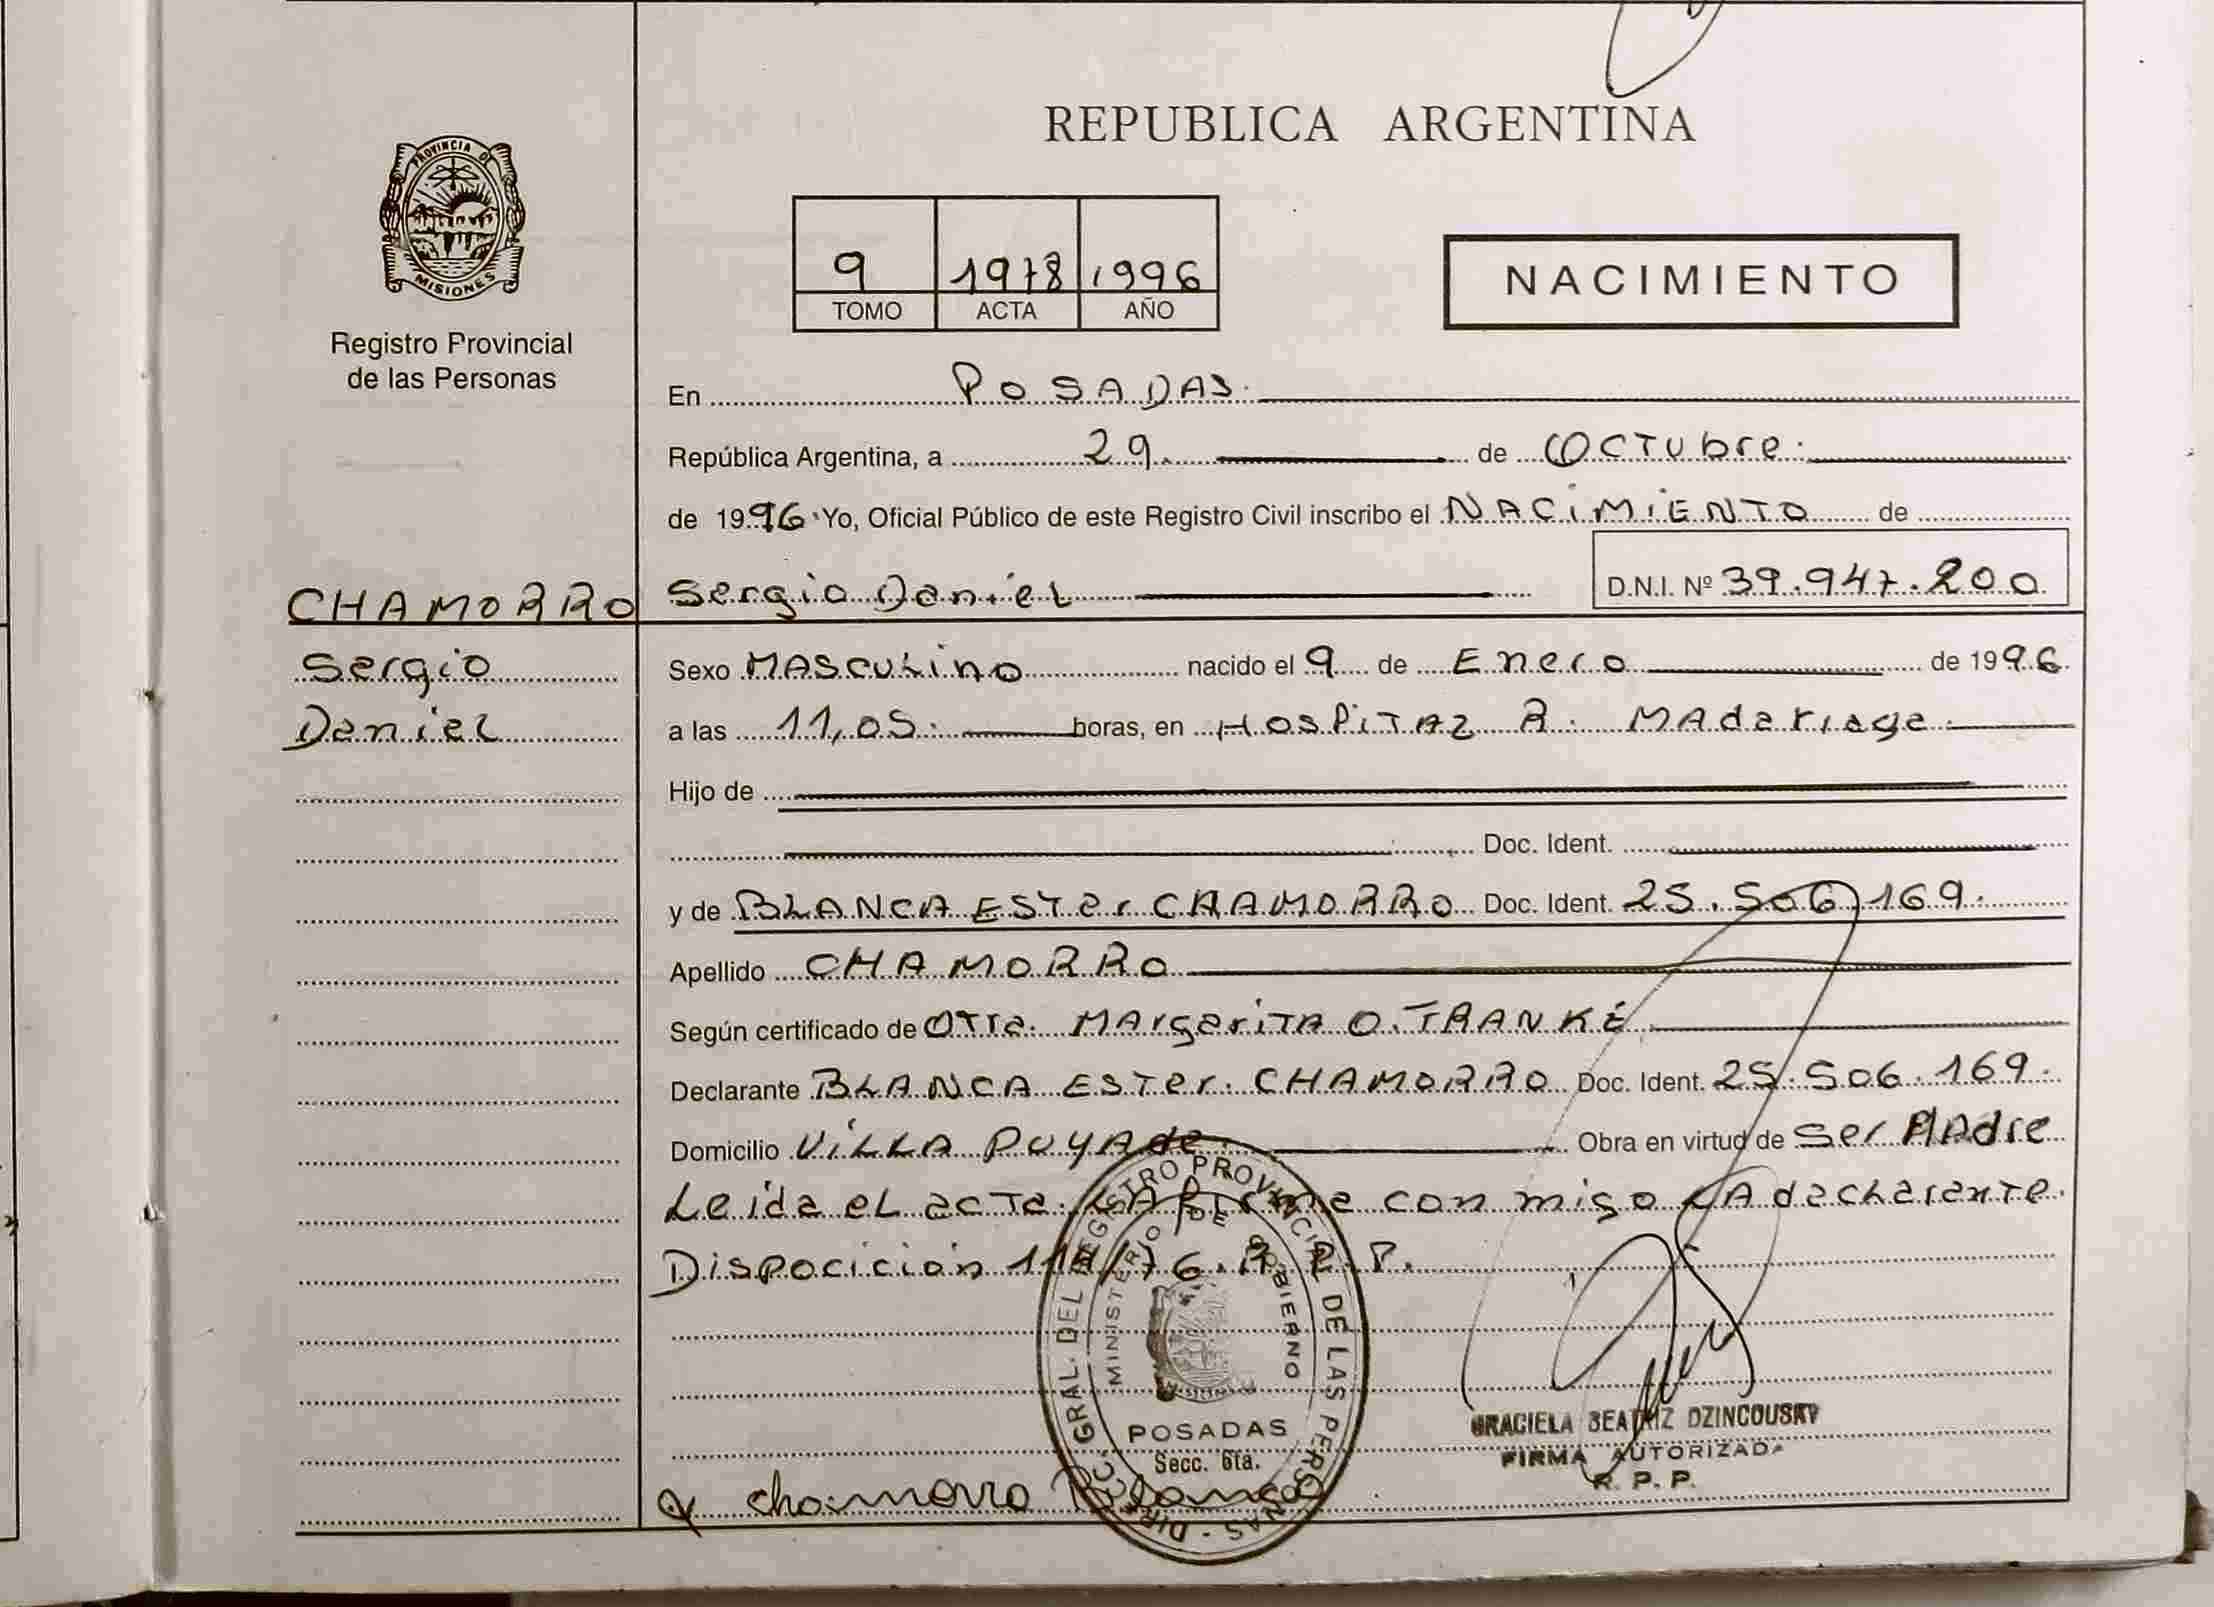 REPUBLICA ARGENTINA
PROVINCIA DE
MISIONES
Registro Provincial
de las Personas
9 1978 1996
TOMO ACTA AÑO
NACIMIENTO
En POSADAS.
República Argentina, a 29. de OCTUbre.
de 1996 Yo, Oficial Público de este Registro Civil inscribo el NACiMiENTO de
CHAMORRO Sergio Daniel D.N.I. Nº 39.947.200
Sergio
Daniel
Sexo MASCULino nacido el 9 de Enero de 1996.
a las 11,05. horas, en HOSPiTAL R. MAdariaga.
Hijo de
Doc. Ident.
y de BLANCA ESTer CHAMORRO Doc. Ident. 25.506.169.
Apellido CHAMORRO
Según certificado de OTTa. MArgariTA O. TRANKE.
Declarante BLANCA ESTer. CHAMORRO Doc. Ident. 25.506.169.
Domicilio ViLLA POUyade. Obra en virtud de Ser MAdre
Leída eL acTa. LA firma con migo LA dacLaranTe.
Disposición /76. R.P.P.
DIRECC. GRAL. DEL REGISTRO PROVINCIAL DE LAS PERSONAS
MINISTERIO DE GOBIERNO
POSADAS
Secc. 6ta.
GRACIELA BEATRIZ DZINCOUSKY
FIRMA AUTORIZADA
R. P. P.
chamorro Blanca